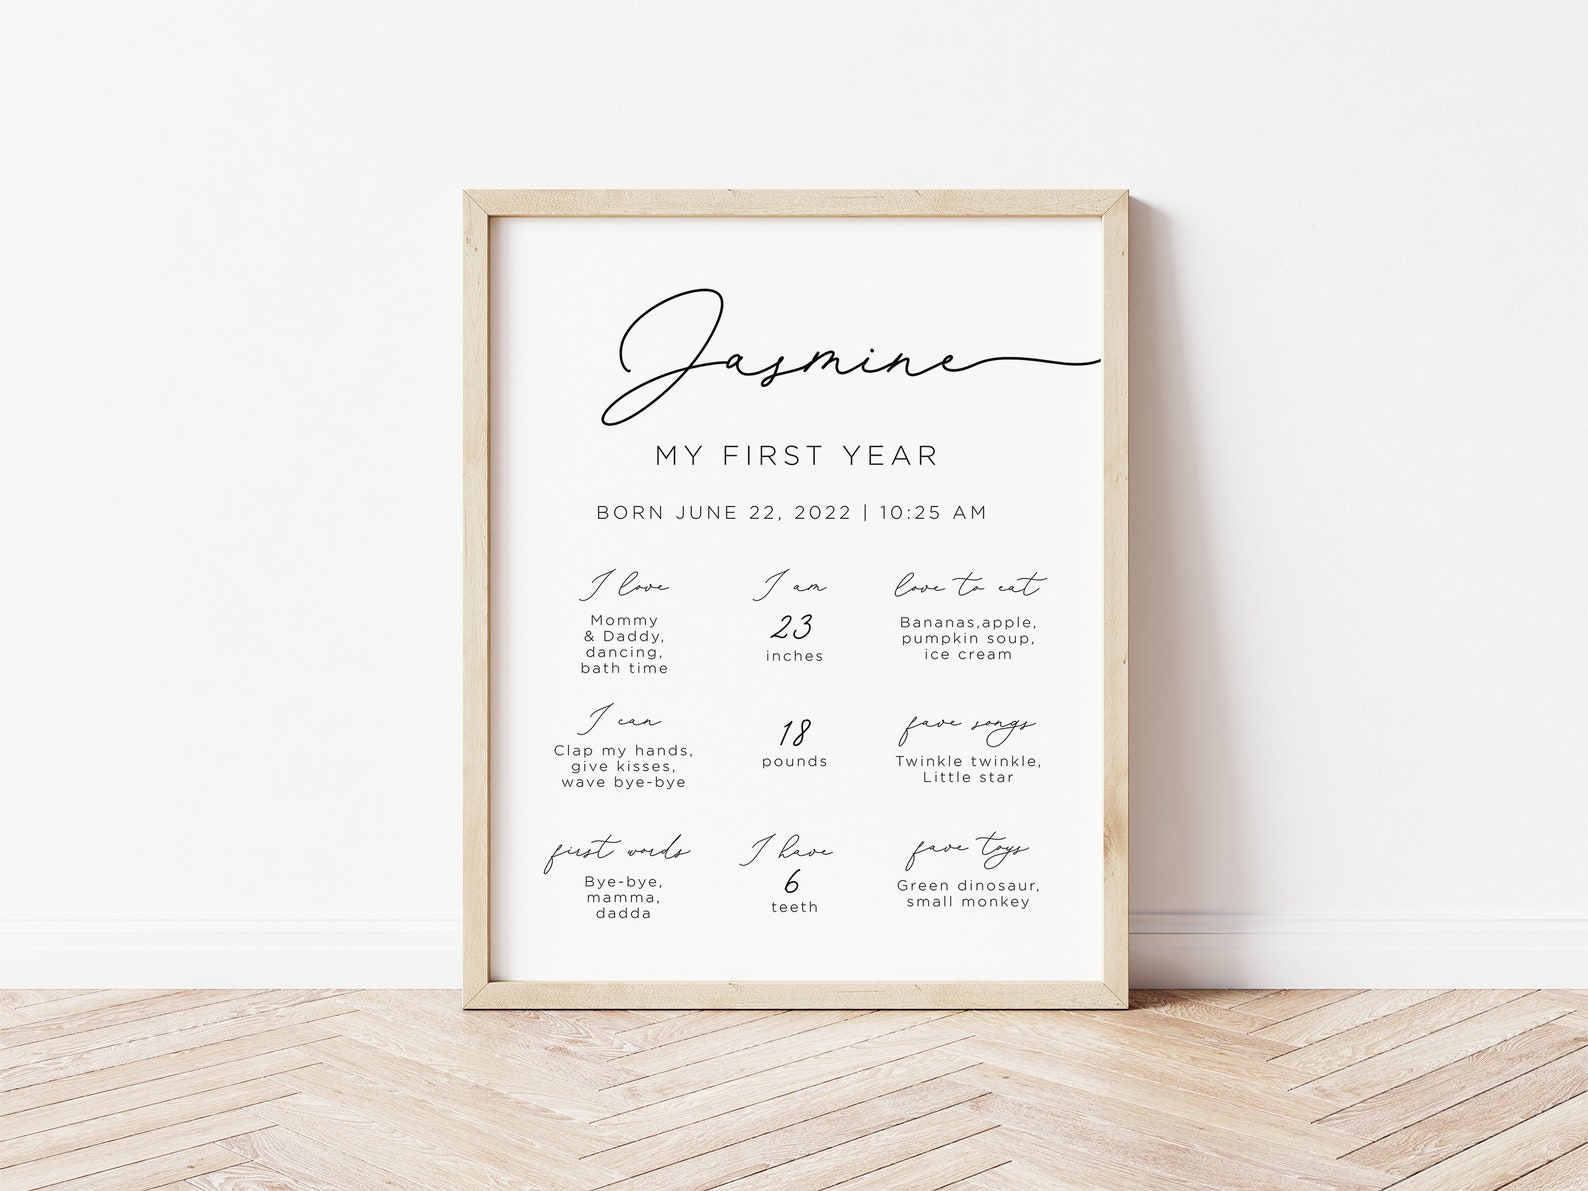 Jasmine
MY FIRST YEAR
BORN JUNE 22, 2022 | 10:25 AM
I love
Mommy
& Daddy,
dancing,
bath time
I am
23
inches
love to eat
Bananas,apple,
pumpkin soup,
ice cream
I can
Clap my hands,
give kisses,
wave bye-bye
18
pounds
fave songs
Twinkle twinkle,
Little star
first words
Bye-bye,
mamma,
dadda
I have
6
teeth
fave toys
Green dinosaur,
small monkey